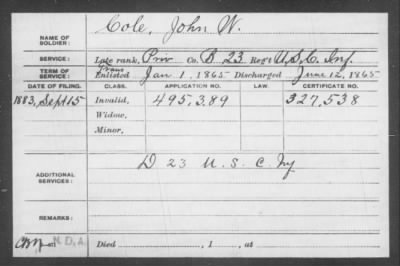 NAME OF SOLDIER: Cole, John W.
SERVICE: Late rank, Priv Co. B 23 Reg't U.S.C. Inf.
TERM OF SERVICE: Trans Enlisted Jan. 1, 1865 Discharged June 12, 1865
DATE OF FILING. CLASS. APPLICATION NO. LAW. CERTIFICATE NO.
1883, Sept 15 Invalid, 495,389 327,538
Widow,
Minor,
ADDITIONAL SERVICES: D 23 U.S.C. Inf
REMARKS:
N.D.A. Died , 1 , at